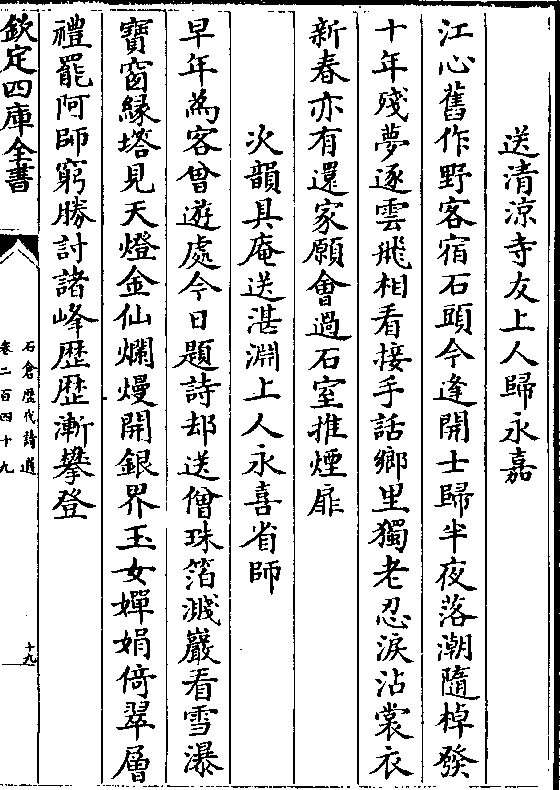 送清涼寺友上人歸永嘉
江心舊作野客宿石頭今逢開士歸半夜落潮隨棹發
十年殘夢逐雲飛相看接手話鄉里獨老忍淚沾裳衣
新春亦有還家願會過石室推煙扉
次韻具庵送湛淵上人永喜省師
早年為客曾遊處今日題詩却送僧珠箔濺巖看雪瀑
寶窗緣塔見天燈金仙爛熳開銀界玉女嬋娟倚翠層
禮罷阿師窮勝討諸峰歷歷漸攀登
欽定四庫全書
石倉歷代詩選
卷二百四十九
十九